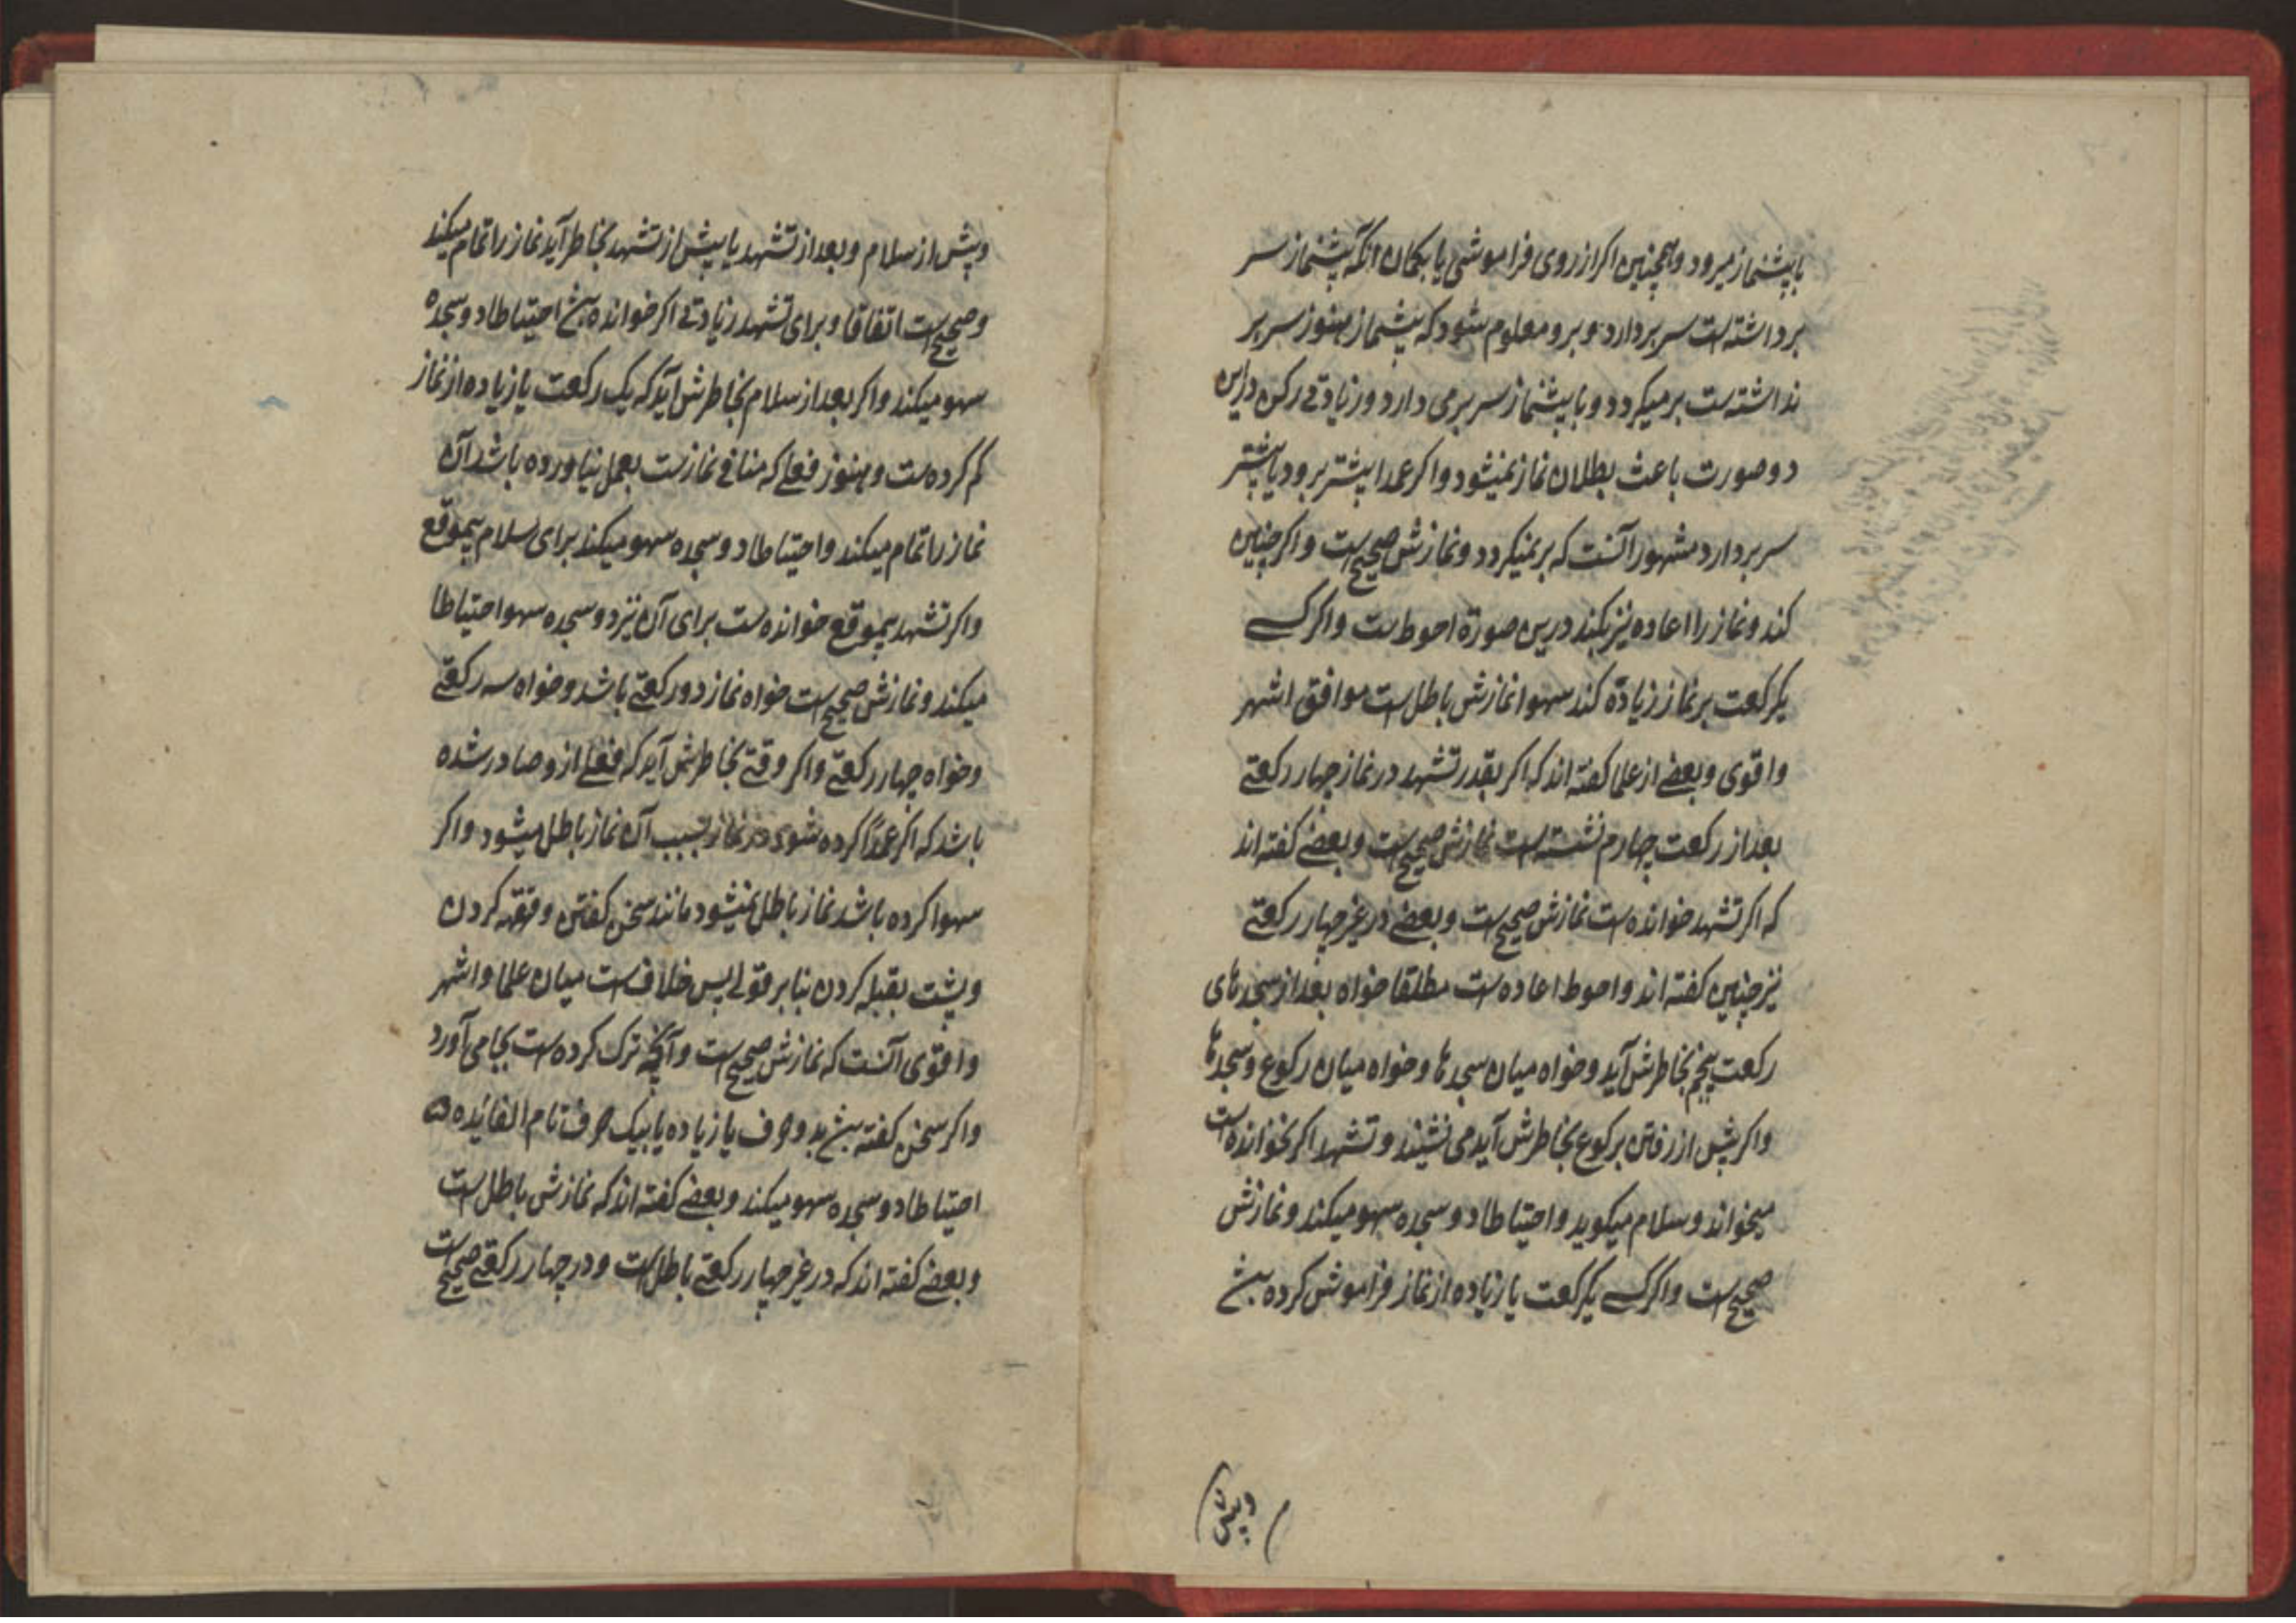 با پیشنماز میرود و همچنین اکر از روی فراموشی یا بکمان انکه پیشنماز سر
برداشته است سر بردارد و برو معلوم شود که پیشنماز هنوز سر بر
نداشته است برمیکردد و با پیشنماز سر برمی دارد و زیادتی رکن دراین
دو صورت باعث بطلان نماز نمیشود و اکر عمدا پیشتر برود یا پیشتر
سر بردارد مشهور آنست که برنمیکردد و نمازش صحیح است و اکر چنین
کند و نماز را اعاده نیز بکند درین صورة احوط است و اکر کسی
یکرکعت بر نماز زیاده کند سهوا نمازش باطل است موافق اشهر
و اقوی و بعضی از علما کفته اند که اکر بقدر تشهد در نماز چهار رکعتی
بعد از رکعت چهارم نشسته است نمازش صحیح است و بعضی کفته اند
که اکر تشهد خوانده است نمازش صحیح است و بعضی در غیر چهار رکعتی
نیز چنین کفته اند و احوط اعاده است مطلقا خواه بعد از سجدهای
رکعت پنجم بخاطرش آید و خواه میان سجدها و خواه میان رکوع و سجدها
و اکر پیش از رفتن برکوع بخاطرش آید می نشیند و تشهد اکر نخوانده است
میخواند و سلام میکوید و احتیاطا دو سجده سهو میکند و نمازش
صحیح است و اکر کسی یکرکعت یا زیاده از نماز فراموش کرده باشد
وپیش
و پیش از سلام و بعد از تشهد یا پیش از تشهد بخاطر آید نماز را تمام میکند
و صحیح است اتفاقا و برای تشهد زیادتی اکر خوانده باشد احتیاطا دو سجده
سهو میکند و اکر بعد از سلام بخاطرش آید که یک رکعت یا زیاده از نماز
کم کرده است و هنوز فعلی که منافی نماز است بعمل نیاورده باشد آن
نماز را تمام میکند و احتیاطا دو سجده سهو میکند برای سلام بیموقع
و اکر تشهد بیموقع خوانده است برای آن نیز دو سجده سهو احتیاطا
میکند و نمازش صحیح است خواه نماز دو رکعتی باشد و خواه سه رکعتی
و خواه چهار رکعتی و اکر وقتی بخاطرش آید که فعلی ازو صادر شده
باشد که اکر عمدًا کرده شود در نماز بسبب آن نماز باطل میشود و اکر
سهوا کرده باشد نماز باطل نمیشود مانند سخن کفتن و قهقهه کردن
و پشت بقبله کردن بنا بر قولی پس خلاف است میان علما و اشهر
و اقوی آنست که نمازش صحیح است و آنچه ترک کرده است بجا می آورد
و اکر سخن کفته باشد بدو حرف یا زیاده یا بیک حرف تام الفائده
احتیاطا دو سجده سهو میکند و بعضی کفته اند که نمازش باطل است
و بعضی کفته اند که در غیر چهار رکعتی باطل است و در چهار رکعتی صحیح است